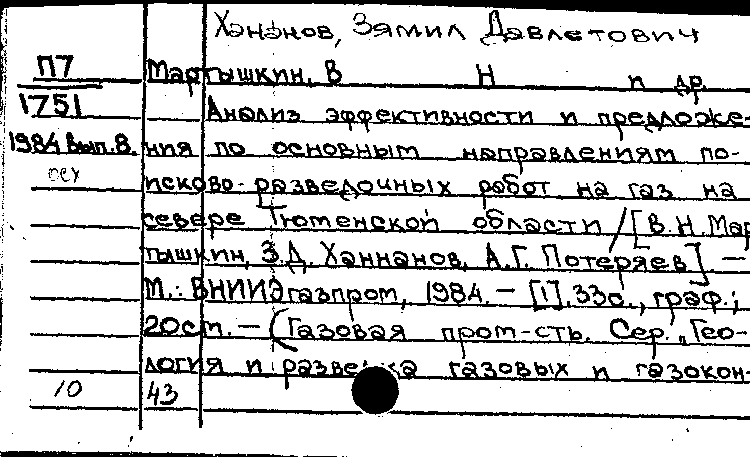 Ханънов, Зямил Давлетович
П7 Мартышкин, В Н и др.
1751 Анализ эффективности и предложе-
1984 вып.8. ния по основным направлениям по-
исково-разведочных работ на газ на
севере Тюменской области / [В.Н. Мар
тышкин, З.Д. Ханнанов, А.Г. Потеряев] —
М.: ВНИИЭгазпром, 1984. — [1], 33с., граф.;
20 см. — (Газовая пром-сть. Сер. „Гео-
логия и разведка газовых и газокон-
10 43